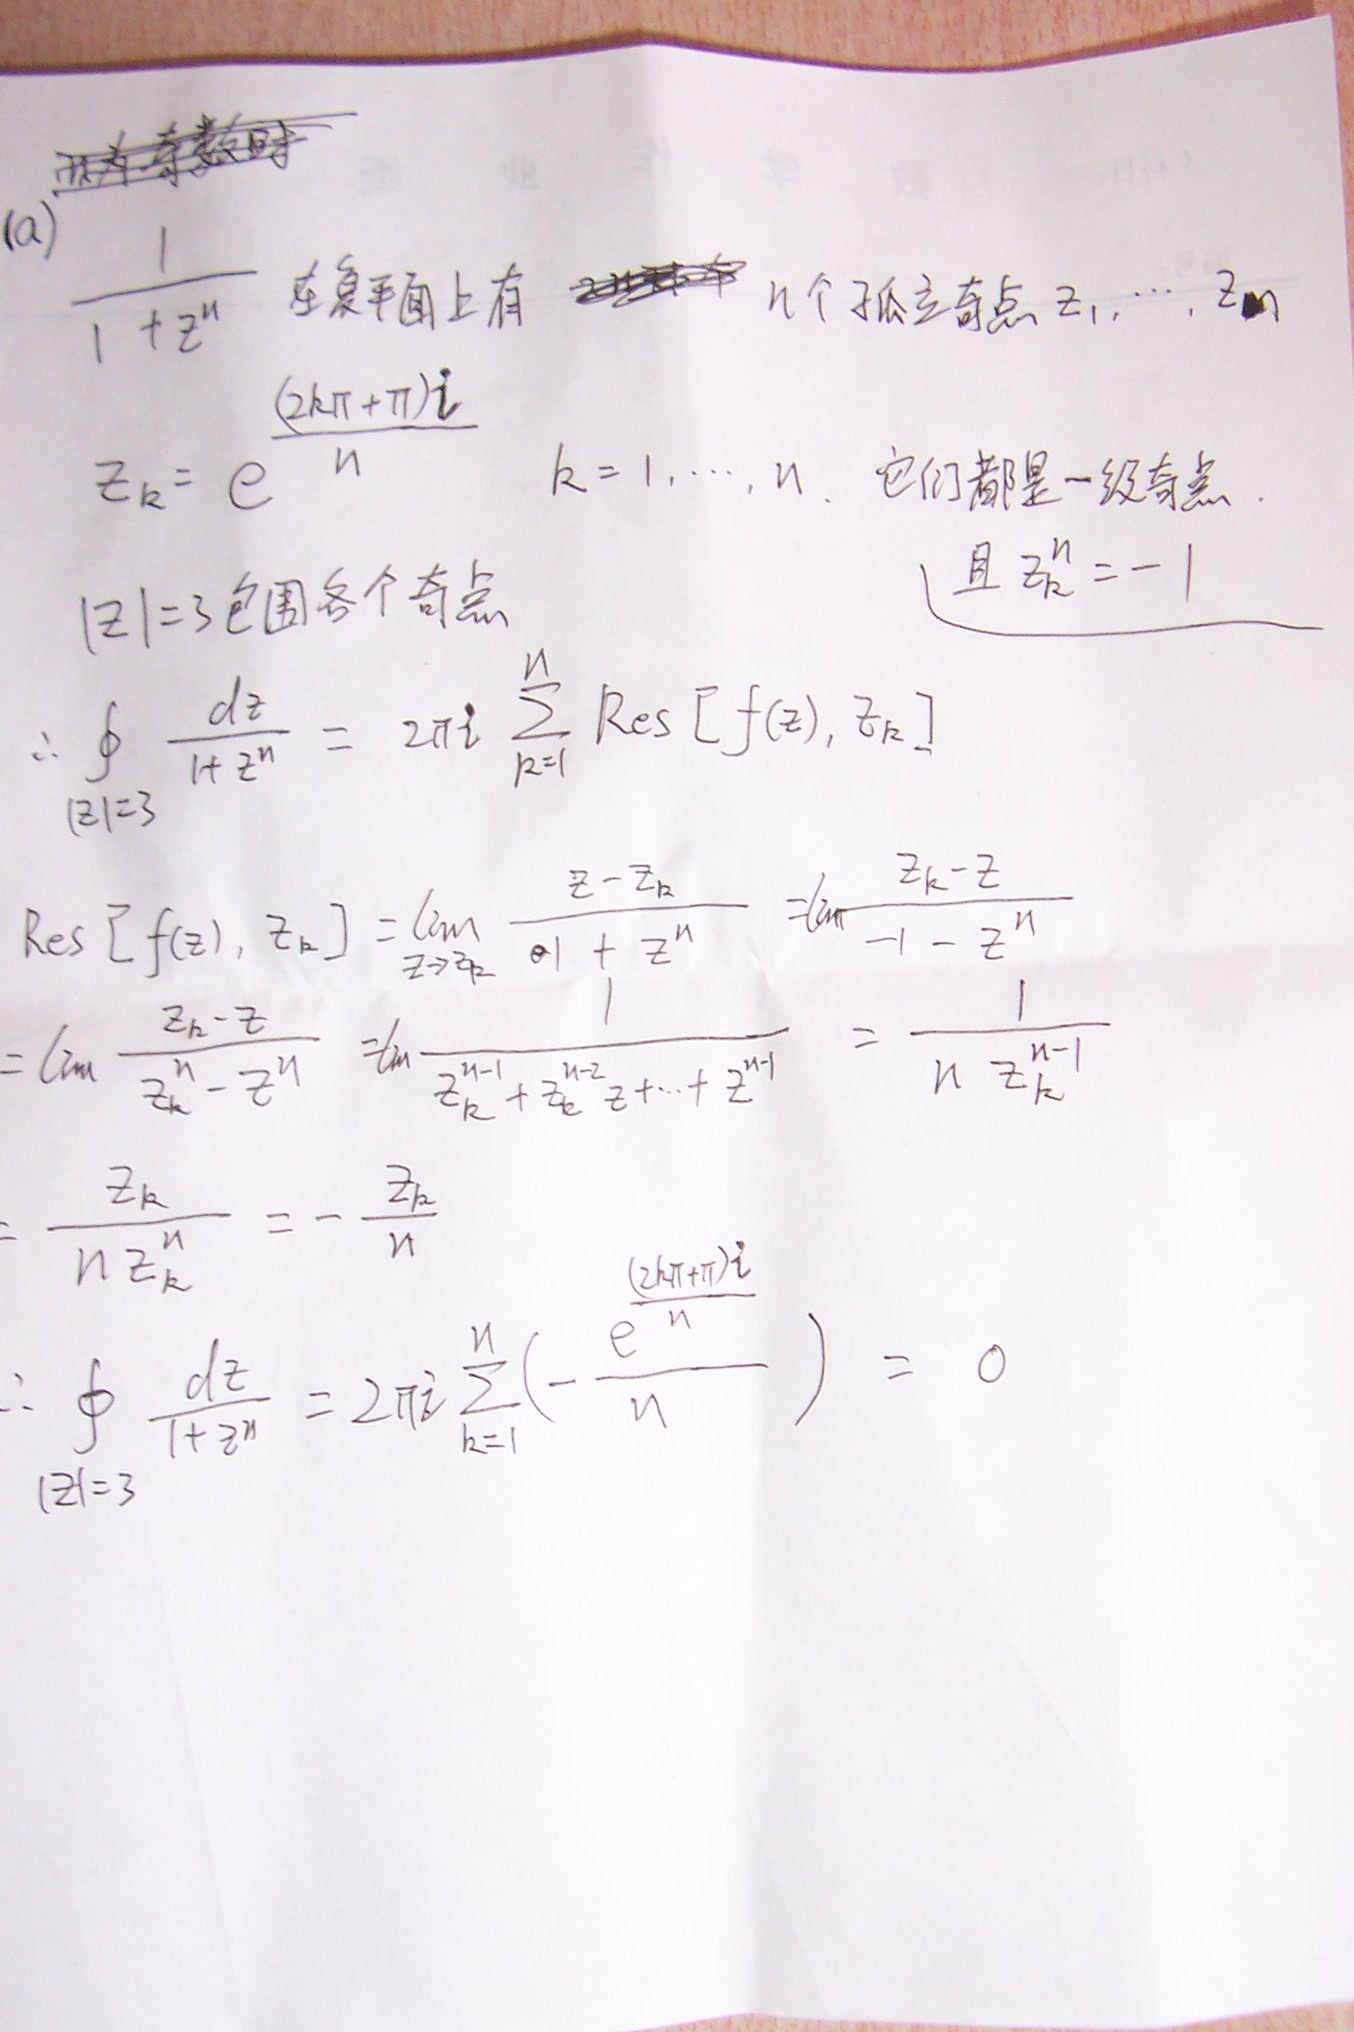 (a)
1/(1+zⁿ) 在复平面上有 n个孤立奇点 z₁, ⋯, zₙ
z_k = e^((2kπ+π)i/n) k=1, ⋯, n. 它们都是一级奇点.
且 z_kⁿ = -1
|z|=3包围各个奇点
∴ ∮_{|z|=3} dz/(1+zⁿ) = 2πi ∑_{k=1}^{n} Res[f(z), z_k]
Res[f(z), z_k] = lim_{z→z_k} (z-z_k)/(1+zⁿ) = lim (z_k-z)/(-1-zⁿ)
= lim (z_k-z)/(z_kⁿ-zⁿ) = lim 1/(z_k^{n-1}+z_k^{n-2}z+⋯+z^{n-1}) = 1/(n z_k^{n-1})
= z_k/(n z_kⁿ) = -z_k/n
∴ ∮_{|z|=3} dz/(1+zⁿ) = 2πi ∑_{k=1}^{n} (-e^((2kπ+π)i/n)/n) = 0